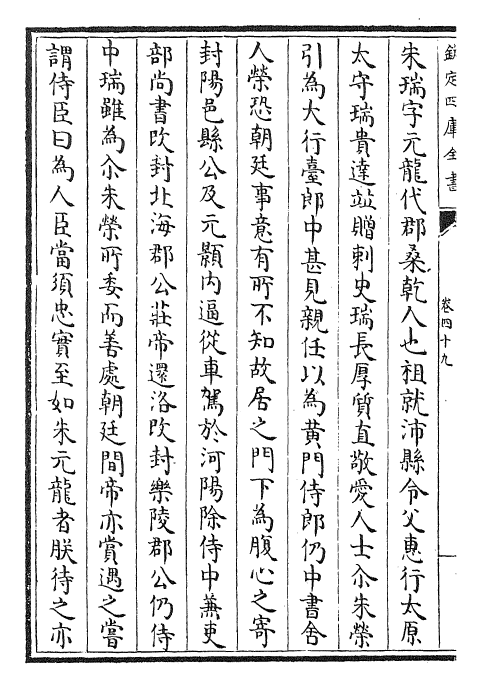 欽定四庫全書
卷四十九
朱瑞字元龍代郡桑乾人也祖就沛縣令父惠行太原
太守瑞貴達並贈刺史瑞長厚質直敬愛人士尒朱榮
引為大行臺郎中甚見親任以為黃門侍郎仍中書舍
人榮恐朝廷事意有所不知故居之門下為腹心之寄
封陽邑縣公及元顥内逼從車駕於河陽除侍中兼吏
部尚書改封北海郡公莊帝還洛改封樂陵郡公仍侍
中瑞雖為尒朱榮所委而善處朝廷間帝亦賞遇之嘗
謂侍臣曰為人臣當須忠實至如朱元龍者朕待之亦